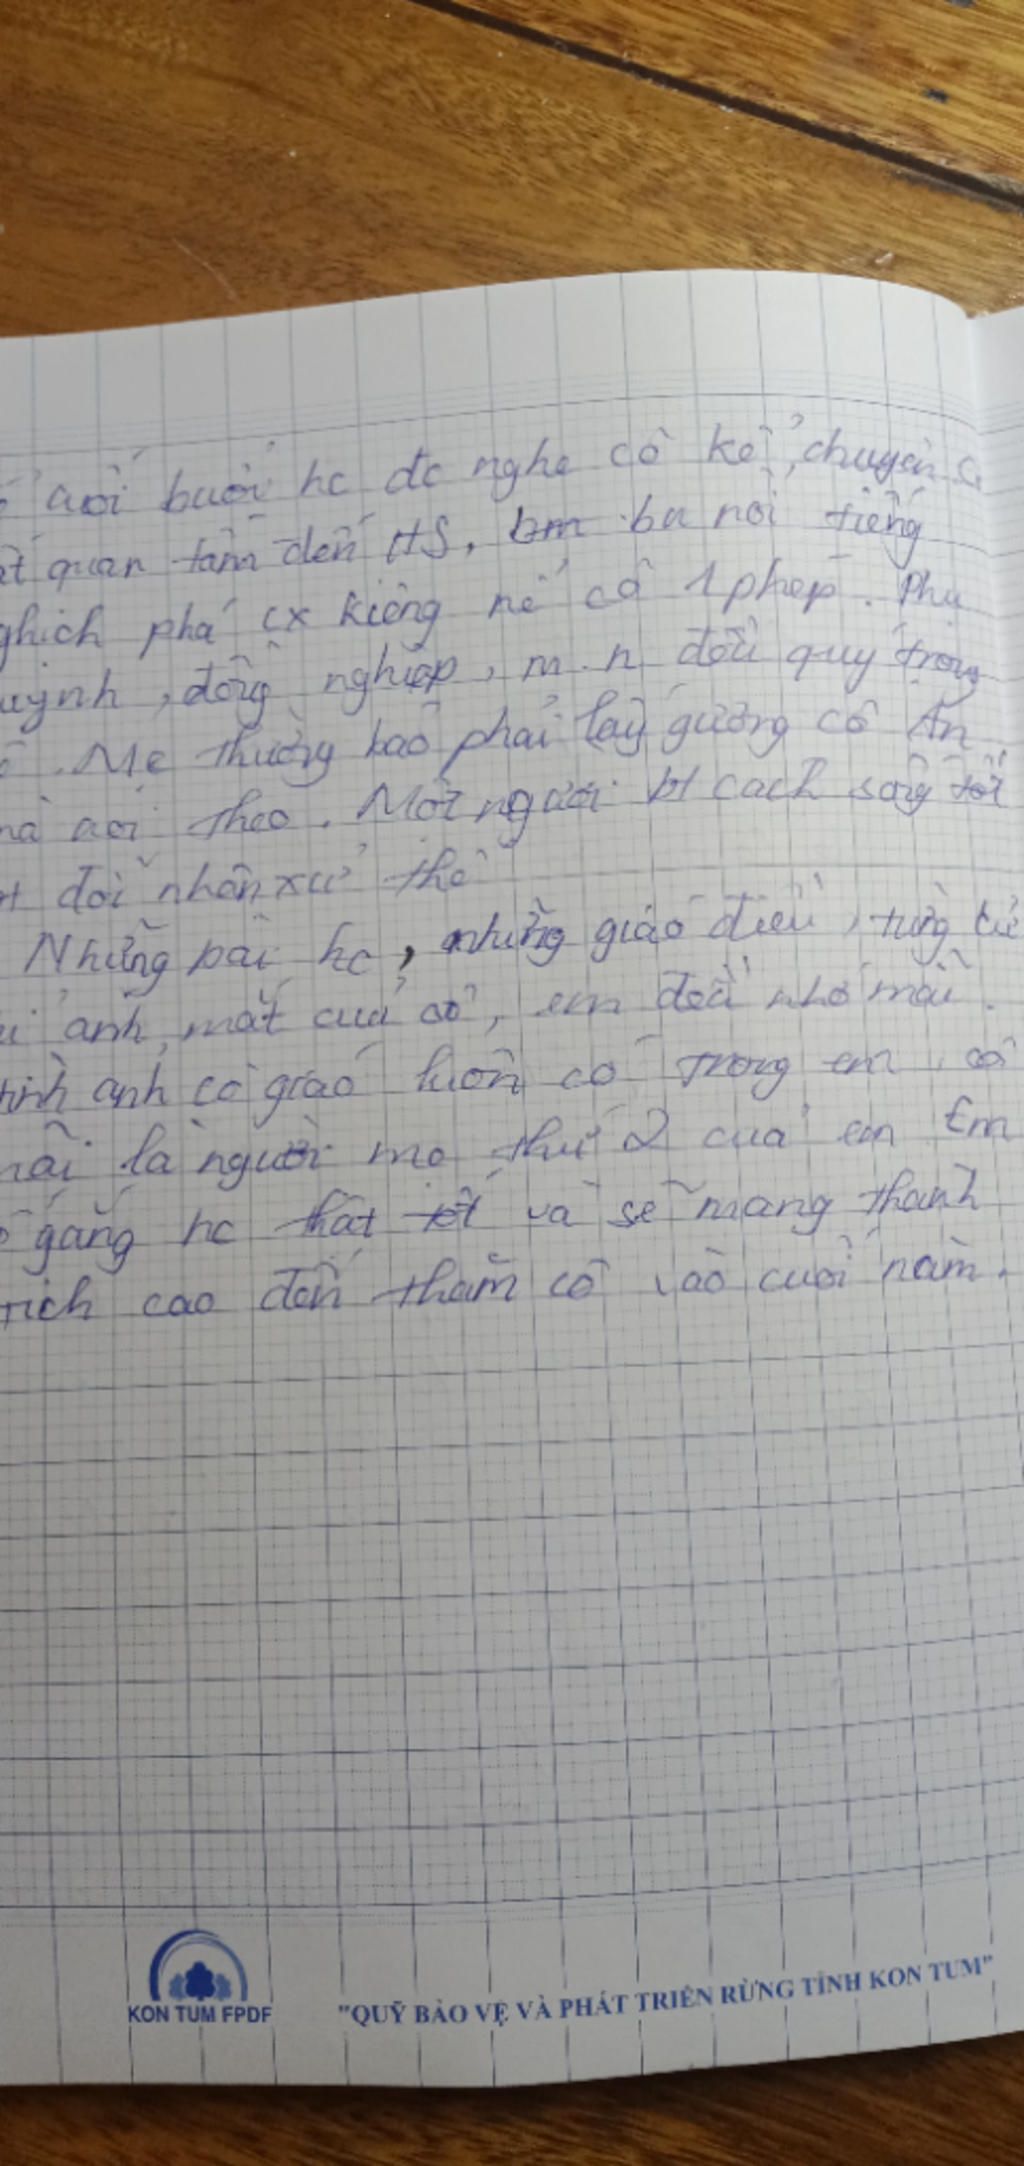 cuối buổi hc đc nghe cô kể chuyện. C
ất quan tâm đến HS, bạn nổi tiếng
ghịch phá cx kiêng nể cô 1 phép. Phụ
uynh, đồng nghiệp, m.n đều quý trọng
ô. Mẹ thường bảo phải lấy gương cô Ân
mà noi theo. Một người bt cách sống tốt
bt đối nhân xử thế
Những bài hc, những giáo điều, từng cử
ỉ ánh mắt của cô, em đều nhớ mãi.
Hình ảnh cô giáo luôn có trong em, cô
mãi là người mẹ thứ 2 của em Em
cố gắng hc thật tốt và sẽ mang thành
tích cao đến thăm cô vào cuối năm.
KON TUM FPDF
"QUỸ BẢO VỆ VÀ PHÁT TRIỂN RỪNG TỈNH KON TUM"